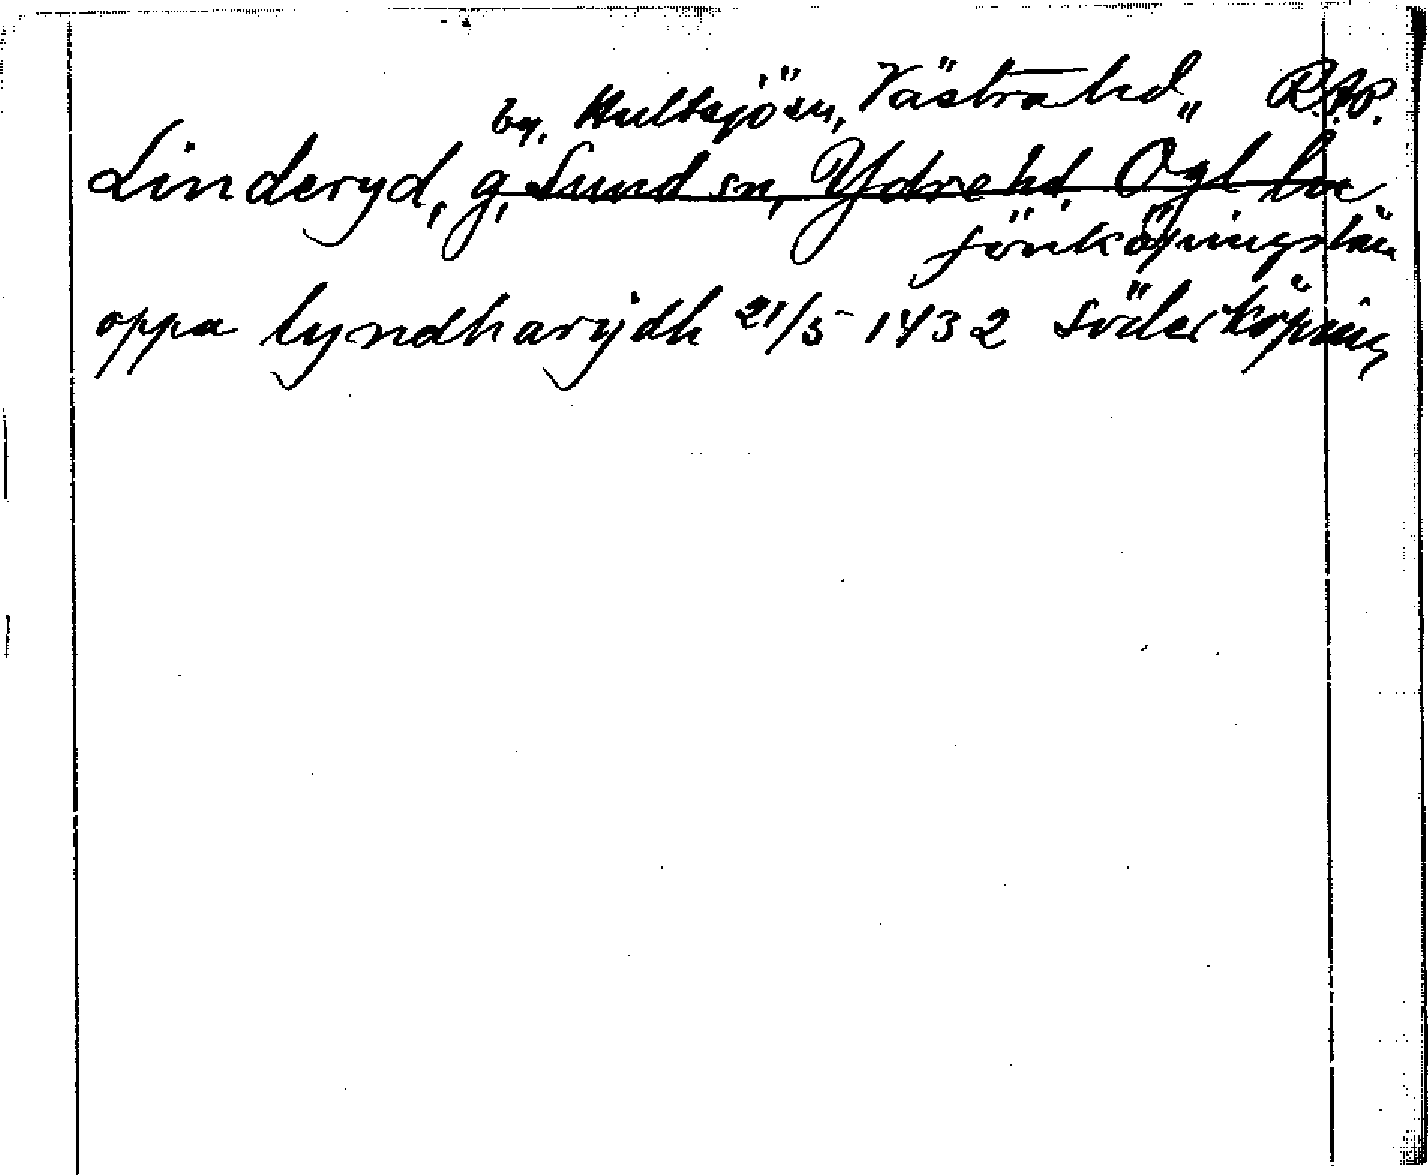 by. Hultsjö sn, Västra hd, R.A.P.
Linderyd, g. Sund sn, Ydre hd. Ögl län
Jönköpings län
oppa lyndharydh 21/5 1432 Söderköping